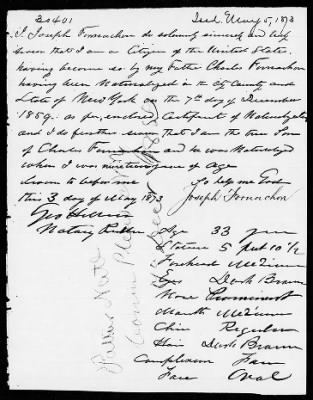 32401 Issd. May 5, 1873
I Joseph Fornachon do solemnly sincerely and
swear that I am a Citizen of the United States
having become so by my Father Charles Fornachon
having been Naturalized in the City County and
State of New York on the 7th day of December
1859. as per enclosed Certificate of Naturalization
and I do further swear that I am the true Son
of Charles Fornachon and he was Naturalized
when I was nineteen years of age
Sworn to before me So help me God
this 3 day of May 1873 Joseph Fornachon
Notary Public
Age 33 years
Stature 5 feet 10 1/2
Forehead Medium
Eyes Dark Brown
Nose Prominent
Mouth Medium
Chin Regular
Hair Dark Brown
Complexion Fair
Face Oval